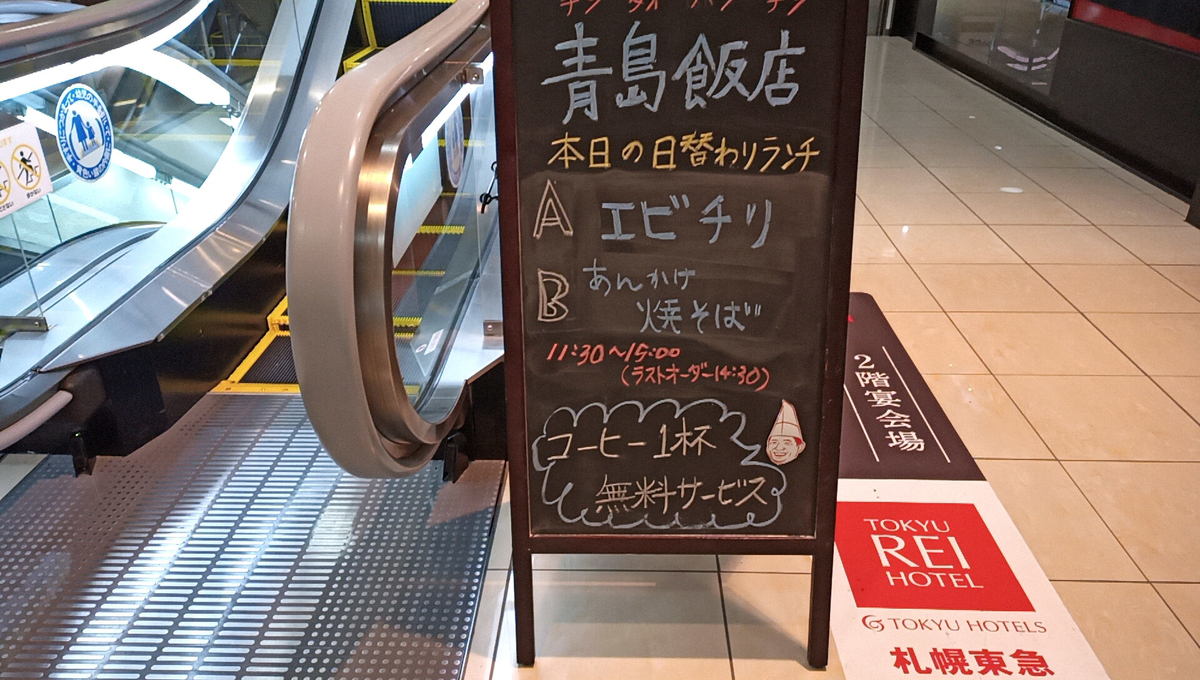 チン タオ ハン テン
青島飯店
本日の日替わりランチ
A エビチリ
B あんかけ
焼そば
11:30~15:00
(ラストオーダー14:30)
コーヒー1杯
無料サービス
2階宴会場
TOKYU
REI
HOTEL
TOKYU HOTELS
札幌東急